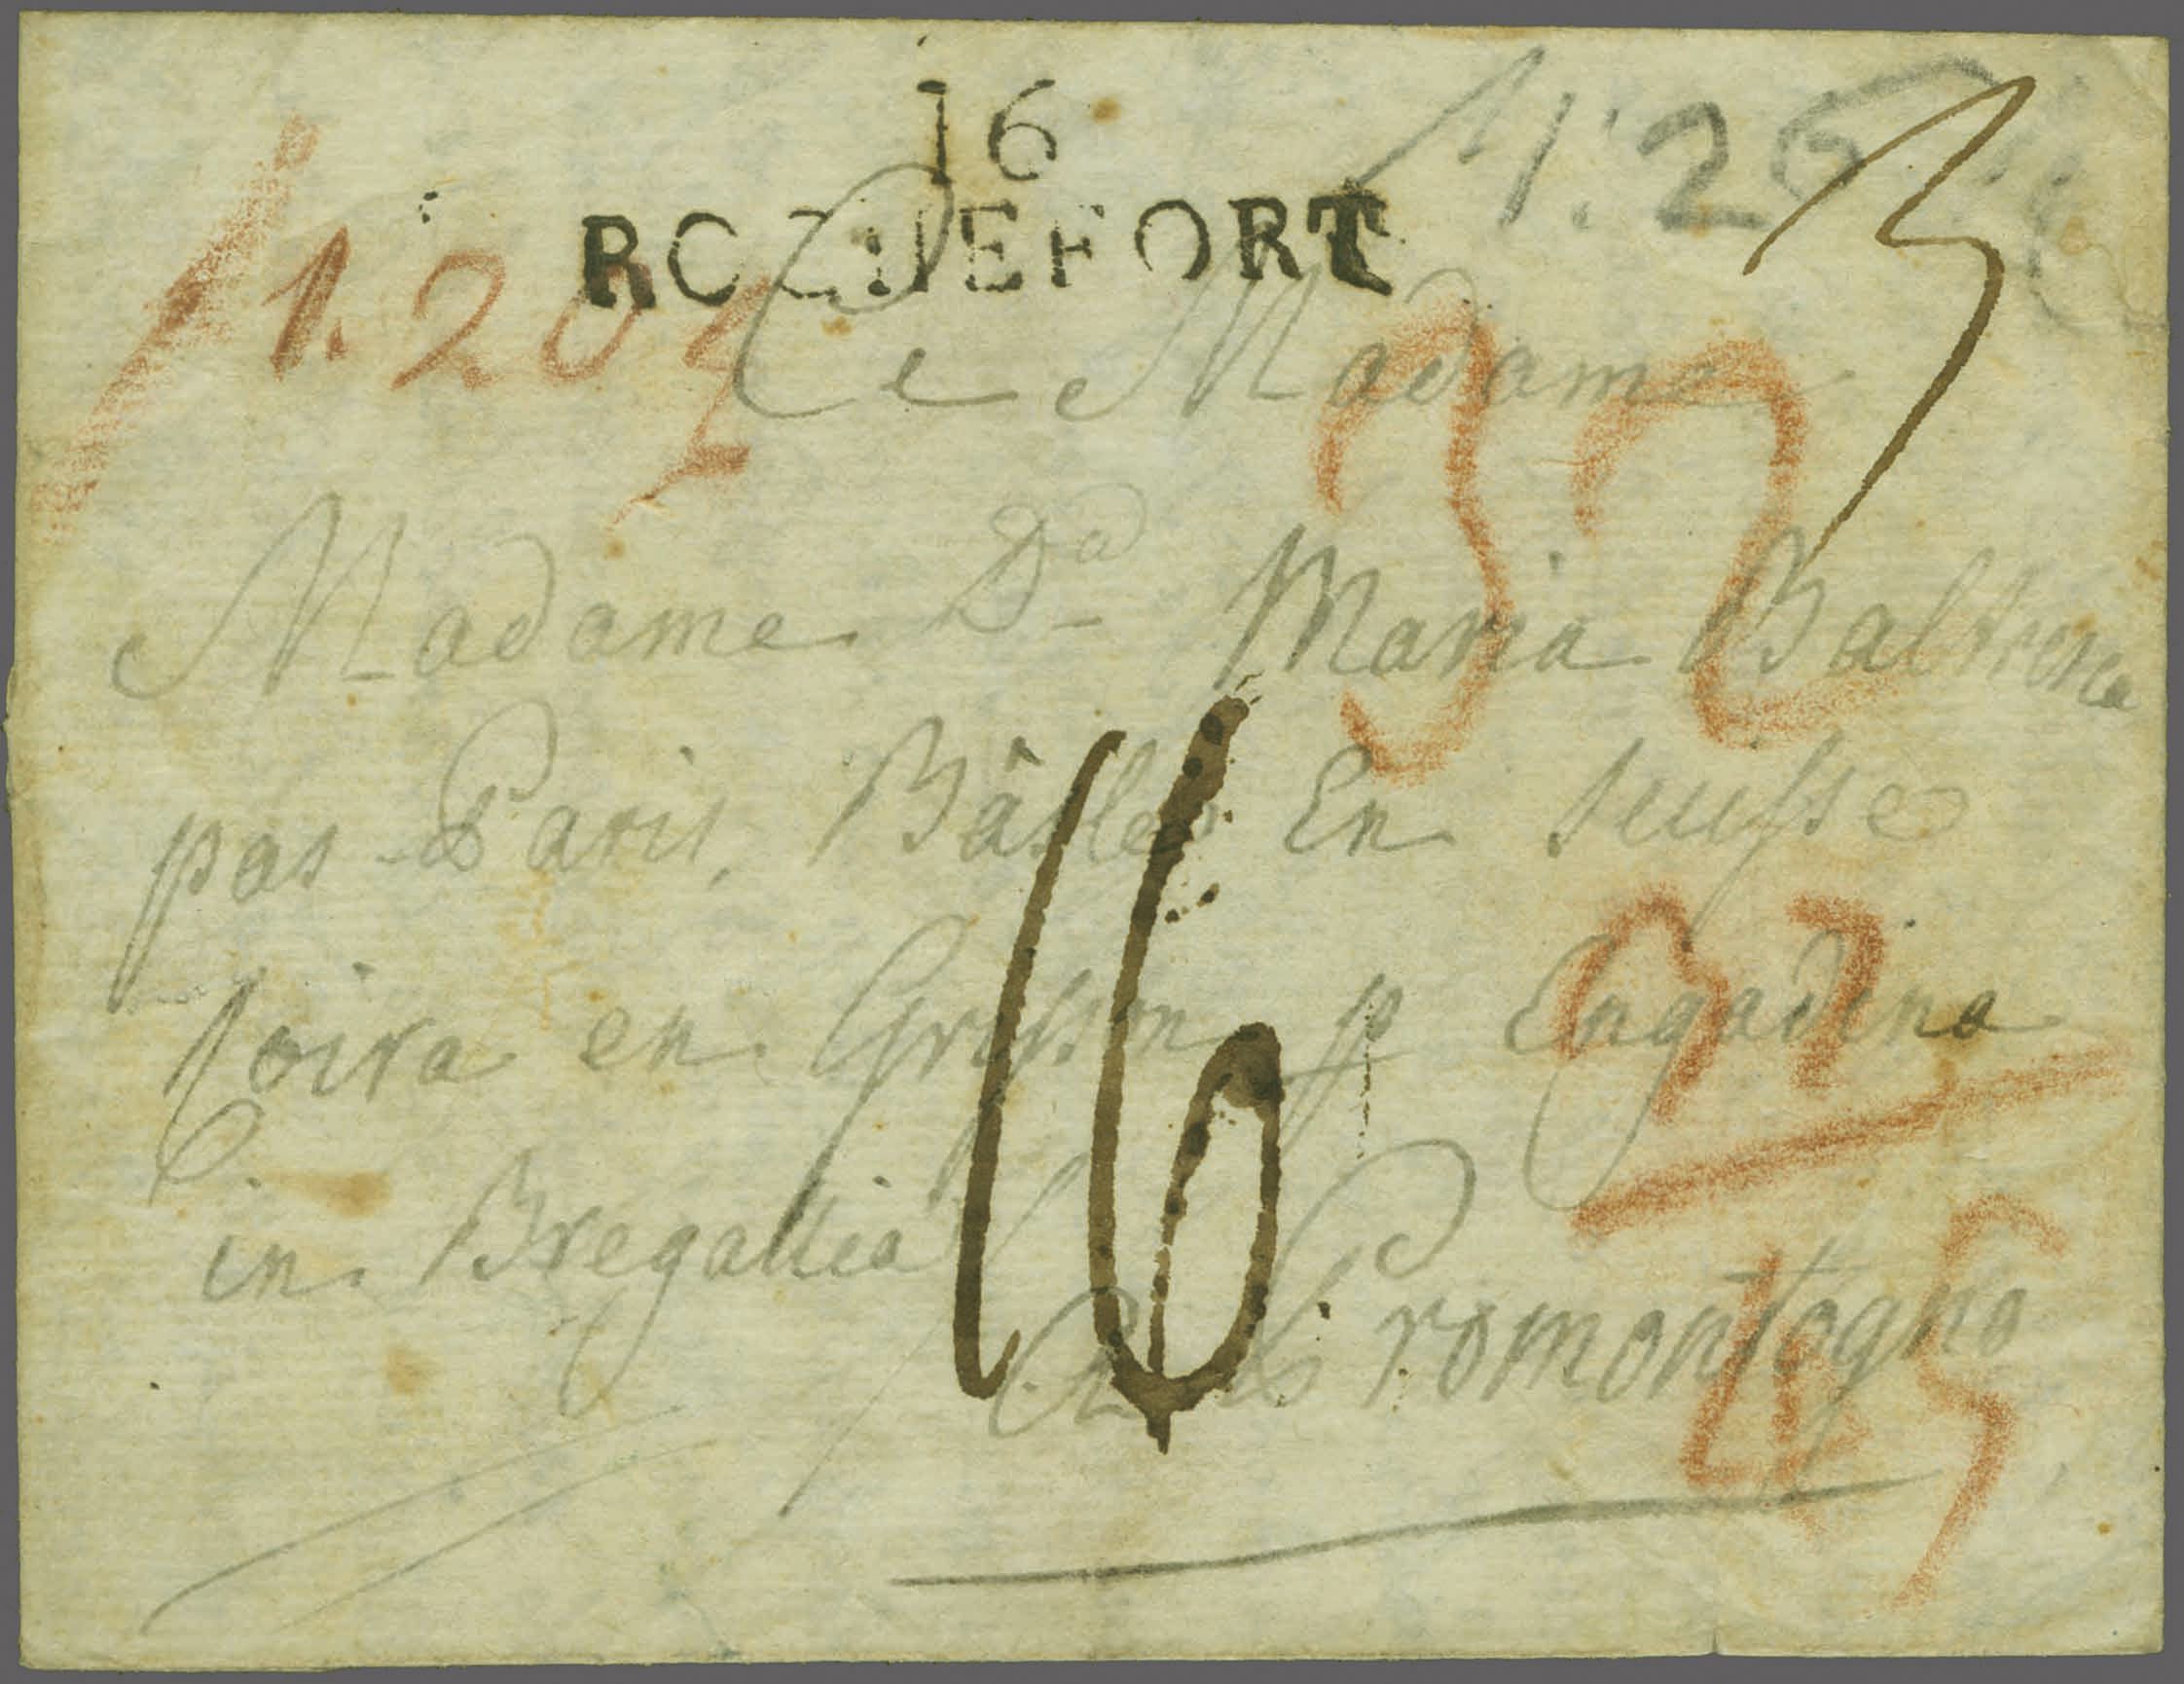 16
ROCHEFORT
1.26
1.20
A Madame
32
Madame Da Maria
par Paris, Basle En Suisse
Coira en Grisson p Engadina
16
in Bregallia
A Promontogno
45